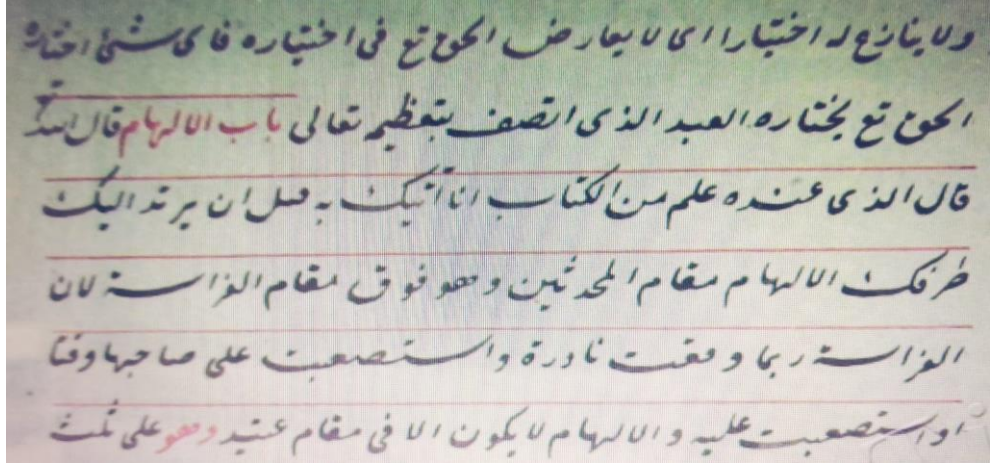 ولا ينازع له اختيارا اى لا يعارض الحق تع فى اختياره فاى شئ اختاره
الحق تع يختاره العبد الذى اتصف بتعظيم تعالى باب الالهام قال الله تع
قال الذى عنده علم من الكتاب انا آتيك به قبل ان يرتد اليك
طرفك الالهام مقام المحدثين وهو فوق مقام الفراسة لان
الفراسة ربما وقعت نادرة واستصعبت على صاحبها وقتا
او استصعبت عليه والالهام لا يكون الا فى مقام عتيد وهو على ثلث